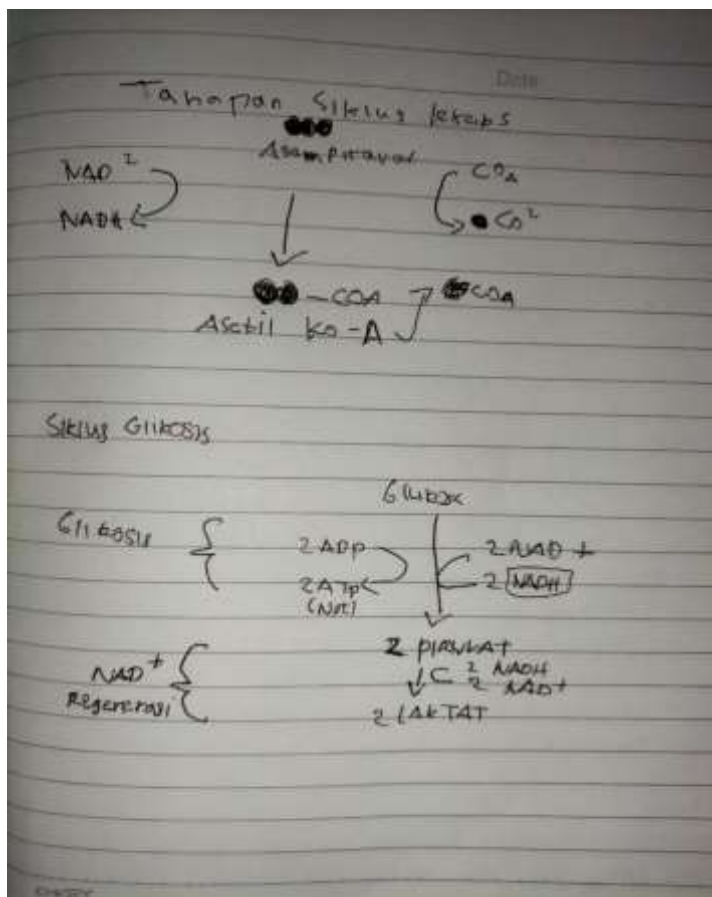 Date
Tahapan Siklus kreabs
Asam Piruvat
NAD
NADH
COA
CO²
-COA
COA
Asetil Ko-A
Siklus Glikosis
Glukosa
Glikosis
2 ADP
2 NAD +
2 ATP
2 NADH
(Net)
2 PIRUVAT
NAD +
2 NADH
2 NAD+
Regenerasi
2 LAKTAT